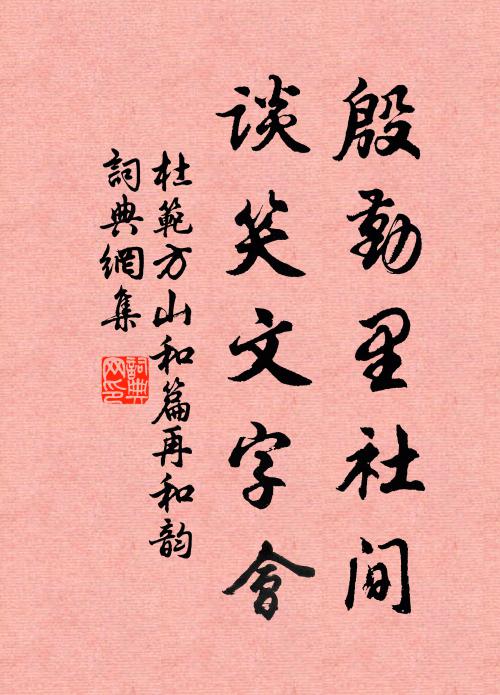 殷勤里社間
談笑文字會
杜範方山和篇再和韵
詞典網集
詞典網印